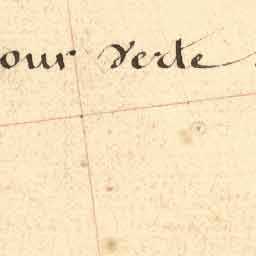 our Verte